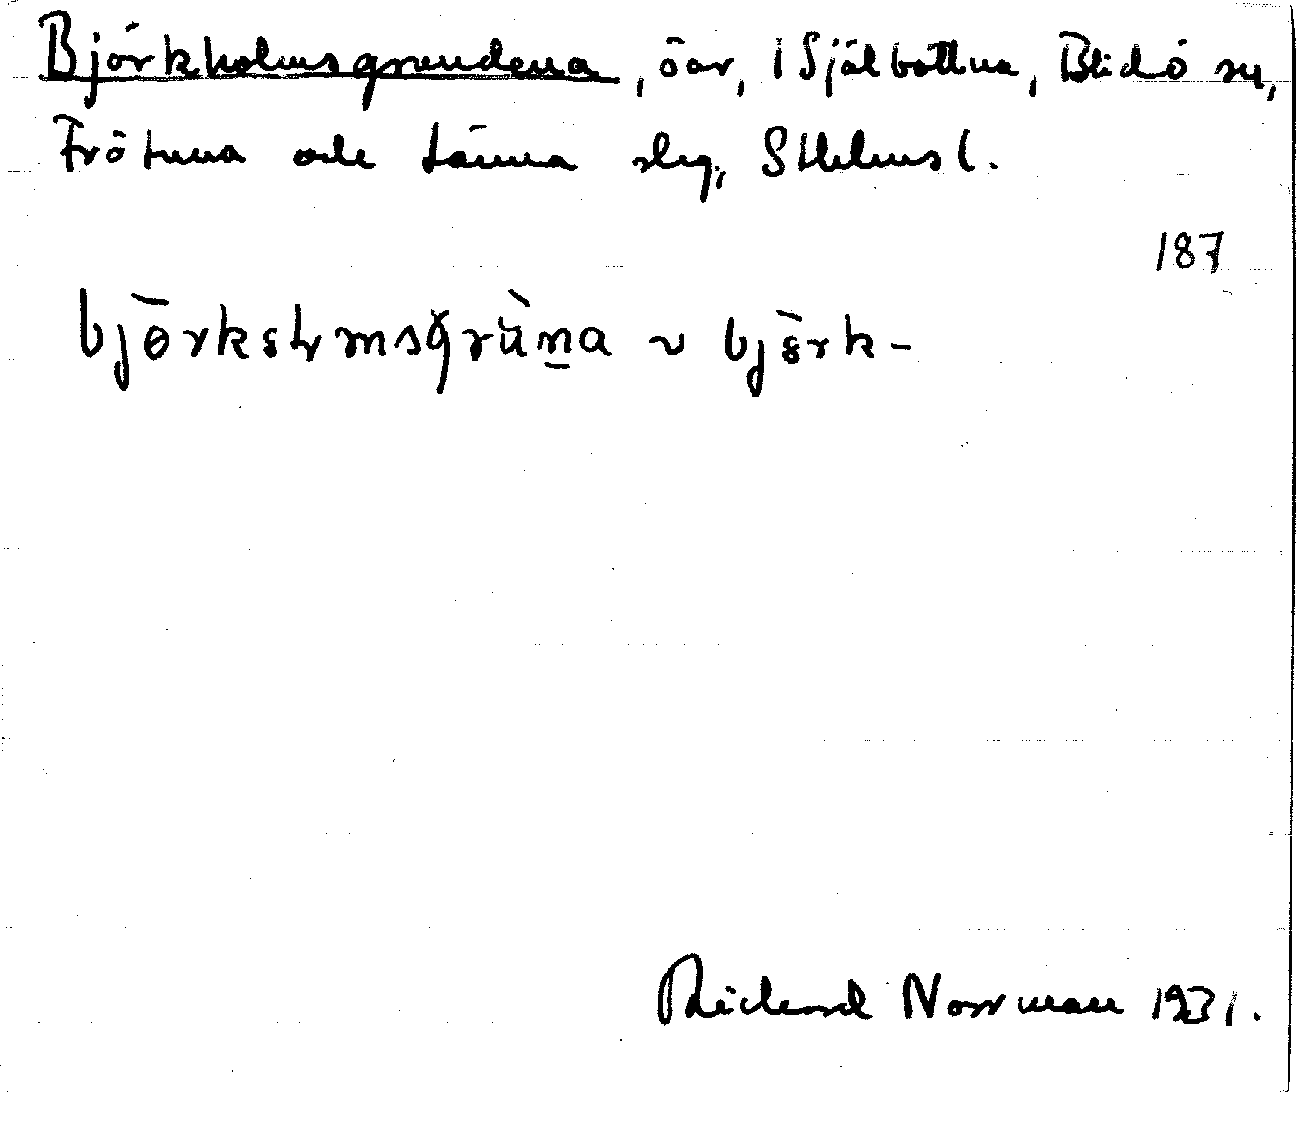 Björkholmsgrundena, öar, i Själbottna, Blidö sn,
Frötuna och Länna slg, Sthlms l.
187
björk-
Richard Norrman 1931.